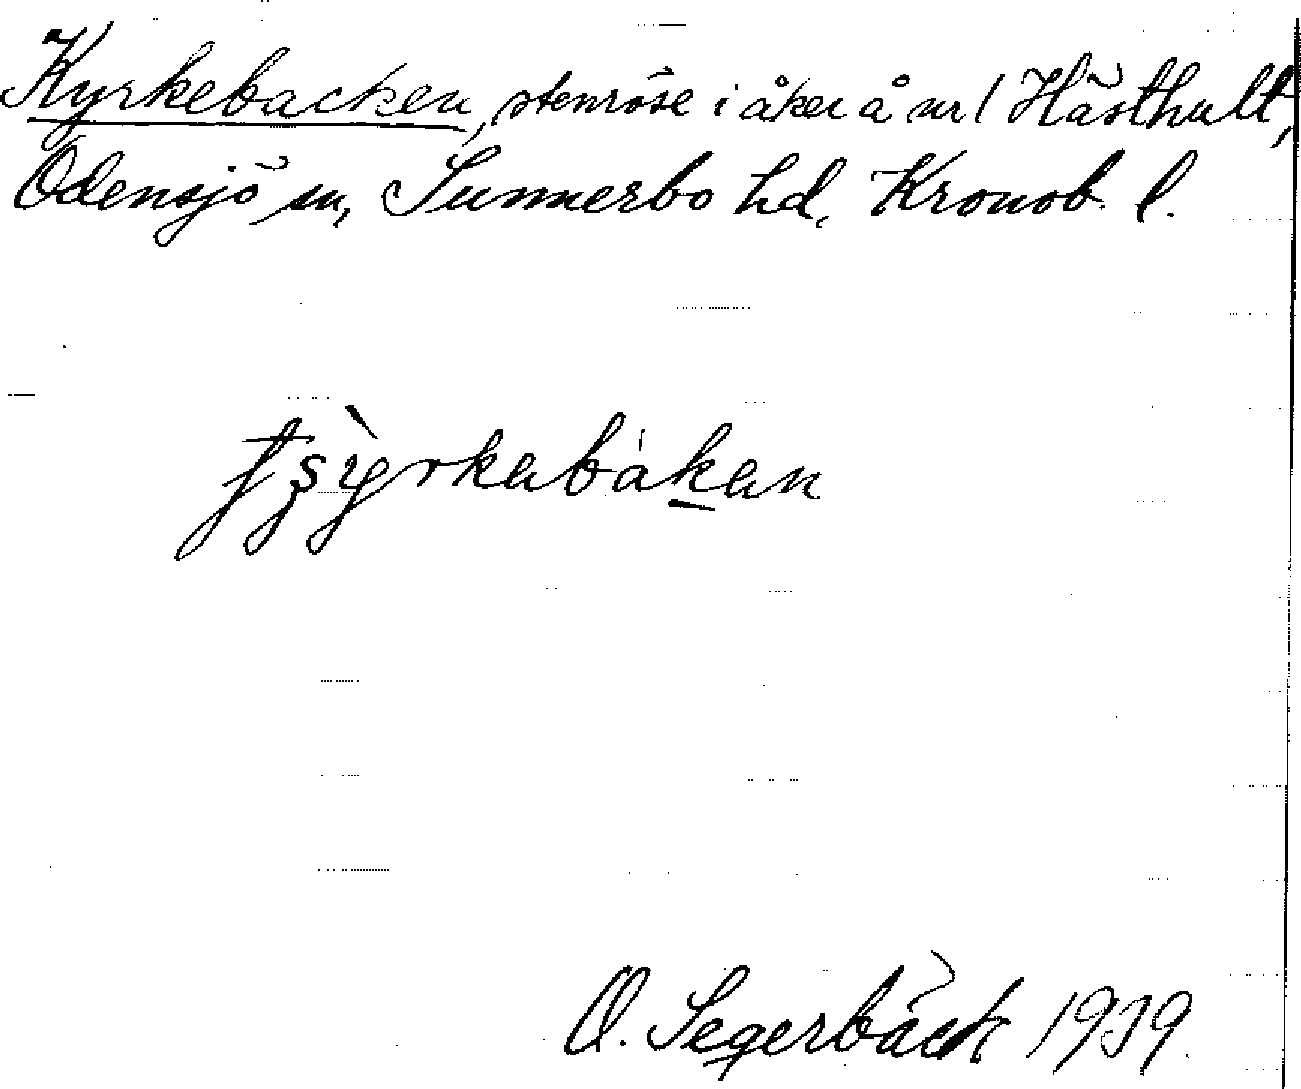 Kyrkebacken, stenröse i åker å nr 1 Hästhult,
Odensjö sn, Sunnerbo hd, Kronob. l.
O. Segerbäck 1939